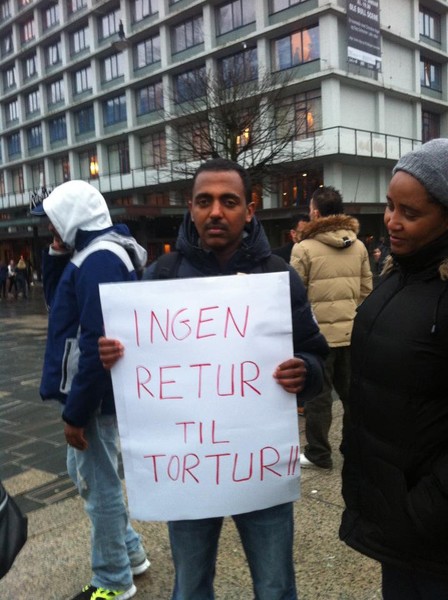 INGEN
RETUR
TIL
TORTUR!!